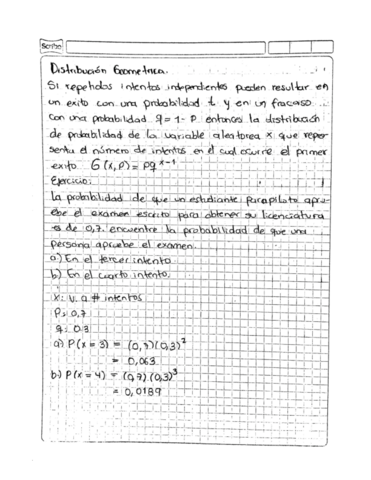 Scribe
Distribución Geometrica.
SI repetidos intentos independientes pueden resultar en
un exito con una probabilidad t y en un fracaso
con una probabilidad q = 1 - P entonces la distribución
de probabilidad de la variable aleatorea x que repre
senta el número de intentos en el cual ocurre el primer
exito G(x,p) = pq^x-1
Ejercicio:
La probabilidad de que un estudiante para piloto apru-
ebe el examen escrito para obtener su licenciatura
es de 0,7. encuentre la probabilidad de que una
persona apruebe el examen.
a) En el tercer intento
b) En el cuarto intento.
X: V. a # intentos
P: 0,7
q: 0.3
a) P(x = 3) = (0,7)(0,3)²
= 0,063
b) P(x = 4) = (0,7)(0,3)³
= 0,0189